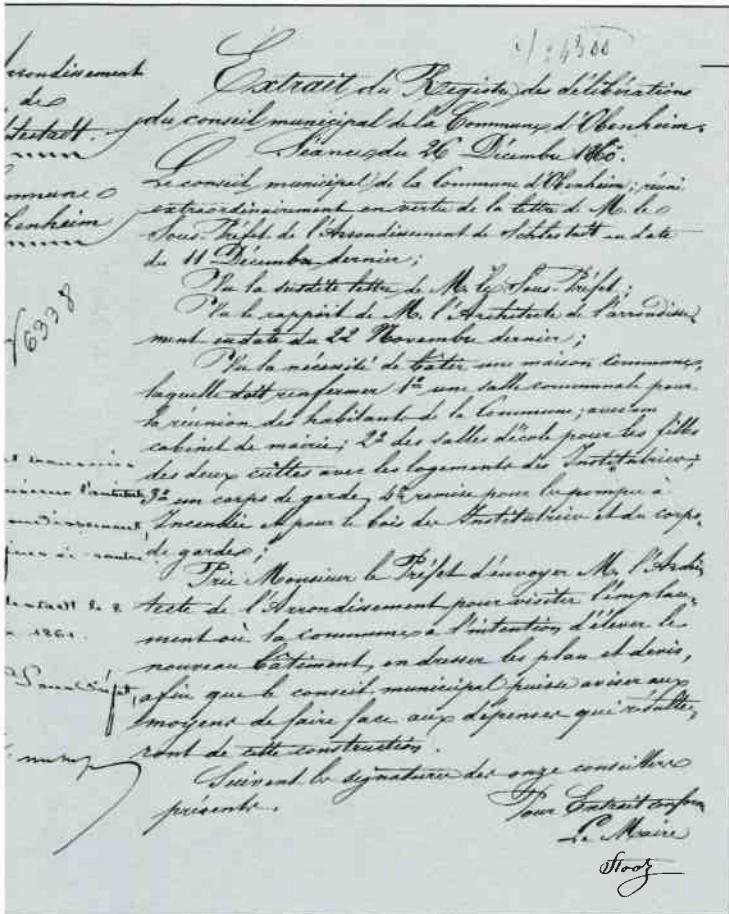 4300
Extrait du Registre des délibérations
du conseil municipal de la Commune d'Obenheim.
Séance du 26 Décembre 1860.
Le conseil municipal de la Commune d'Obenheim; réuni
extraordinairement en vertu de la lettre de M. le
Sous-Préfet de l'Arrondissement de Schlestadt en date
du 11 Decembre dernier;
Vu la susdite lettre de M. le Sous-Préfet;
Vu le rapport de M. l'Architecte de l'arrondisse
ment en date du 22 Novembre dernier;
Vu la nécessité de bâtir une maison commune,
laquelle doit renfermer 1º une salle communale pour
la réunion des habitants de la Commune; avec un
cabinet de mairie; 2º des salles d'école pour les filles
des deux cultes avec les logements des Institutrices;
3º un corps de garde, 4º remise pour la pompe à
Incendie et pour le bois des Institutrices et du corps
de garde;
Prie Monsieur le Préfet d'envoyer M. l'Archi
tecte de l'Arrondissement pour visiter l'emplace
ment où la commune a l'intention d'élever le
nouveau bâtiment, en dresser les plan et devis,
afin que le conseil municipal puisse aviser aux
moyens de faire face aux dépenses qui résulte
ront de cette construction.
Suivent les signatures des onze conseillers
présents.
Pour Extrait confor
Le Maire
Stooz
rrondissement
de
lestadt.
ommune
benheim
6338
l'architecte
ondissement
le 8
1861.
Sous Préfet,